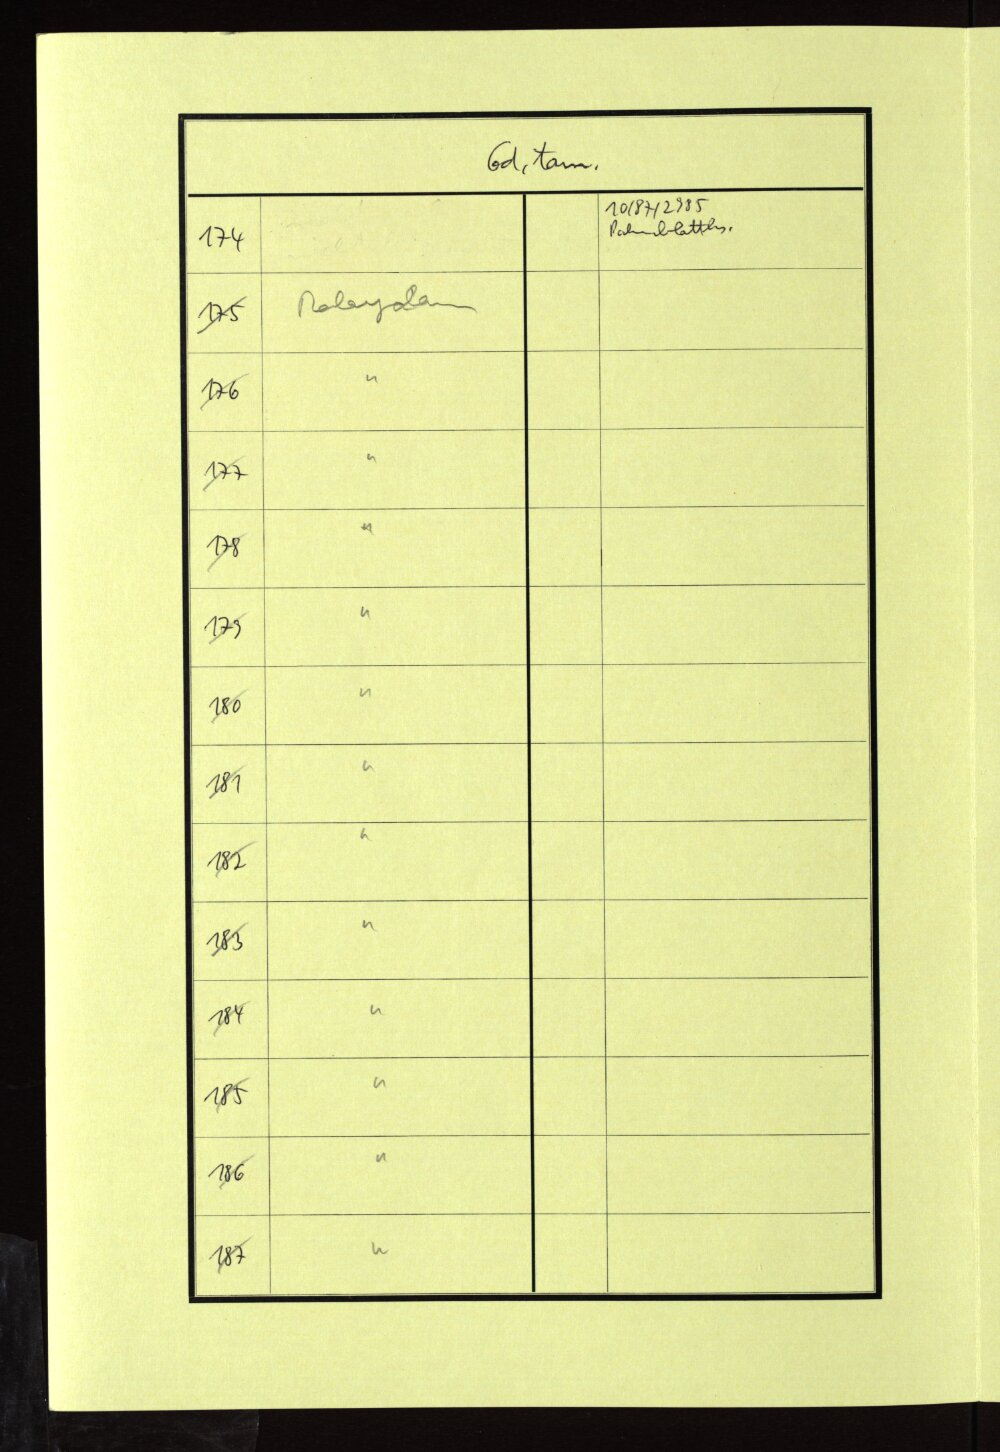 Cod. tam.
174 10/87/2985
Palmblatths.
175 Malayalam
176 "
177 "
178 "
179 "
180 "
181 "
182 "
183 "
184 "
185 "
186 "
187 "